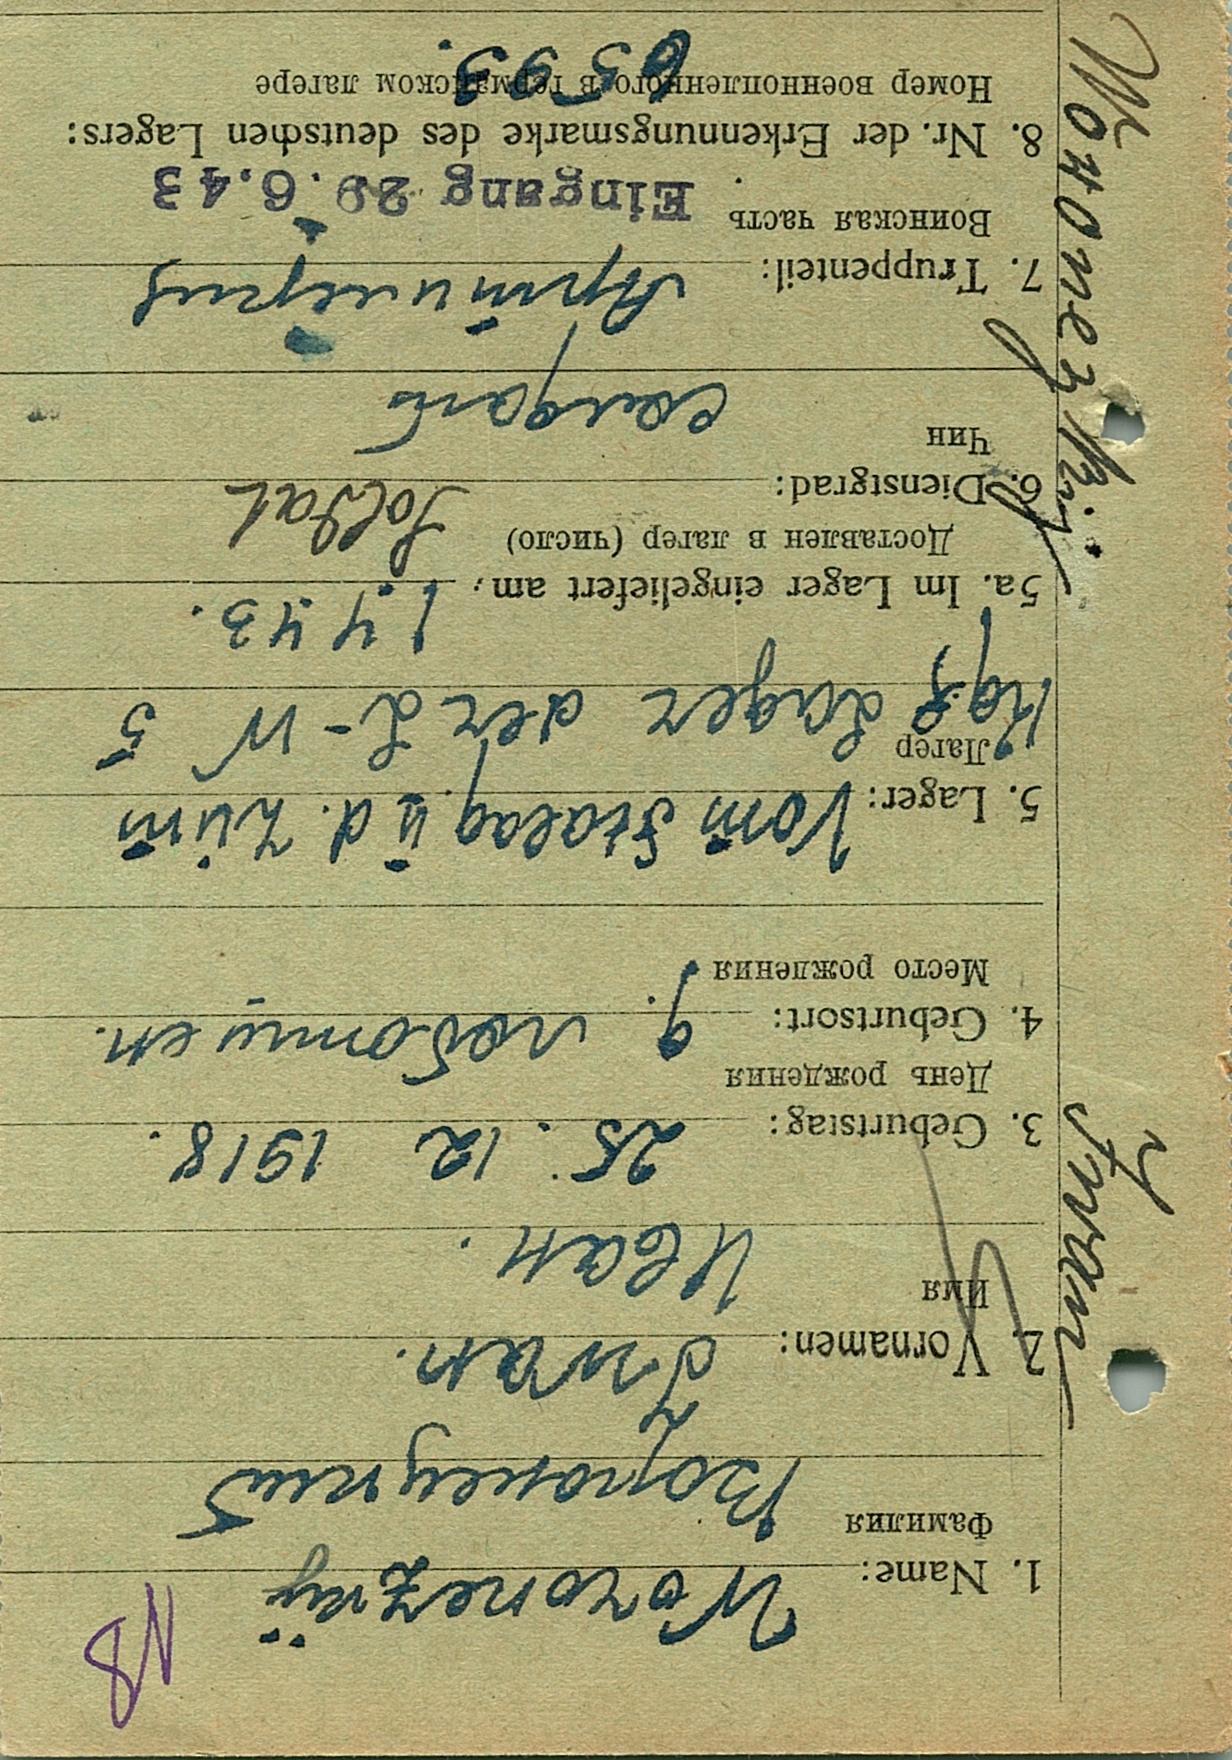 18
1. Name: Woronezkij
Фамилия Воронецкий
2. Vornamen: Iwan.
Имя Иван.
3. Geburtstag: 25. 12 1918.
День рождения
4. Geburtsort: д.
Место рождения
5. Lager: Vom Stalag d. zum
Лагер Lager der L-W 5
5a. Im Lager eingeliefert am: 1. 4. 43.
Доставлен в лагер (число)
6. Dienstgrad: Soldat
Чин солдат
7. Truppenteil: Артилерия
Воинская часть Eingang 29.6.43
8. Nr. der Erkennungsmarke des deutschen Lagers:
Номер военнопленного в германском лагере 6593.
Iwan Woronezkij